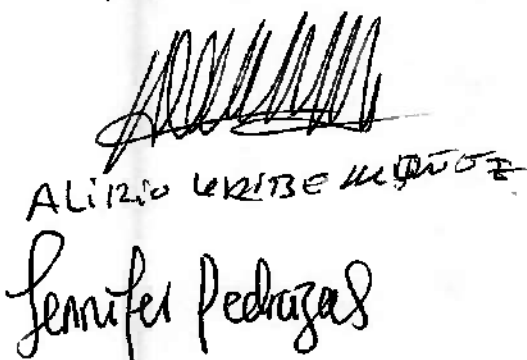 ALIRIO URIBE MUÑOZ
Jennifer Pedraza S